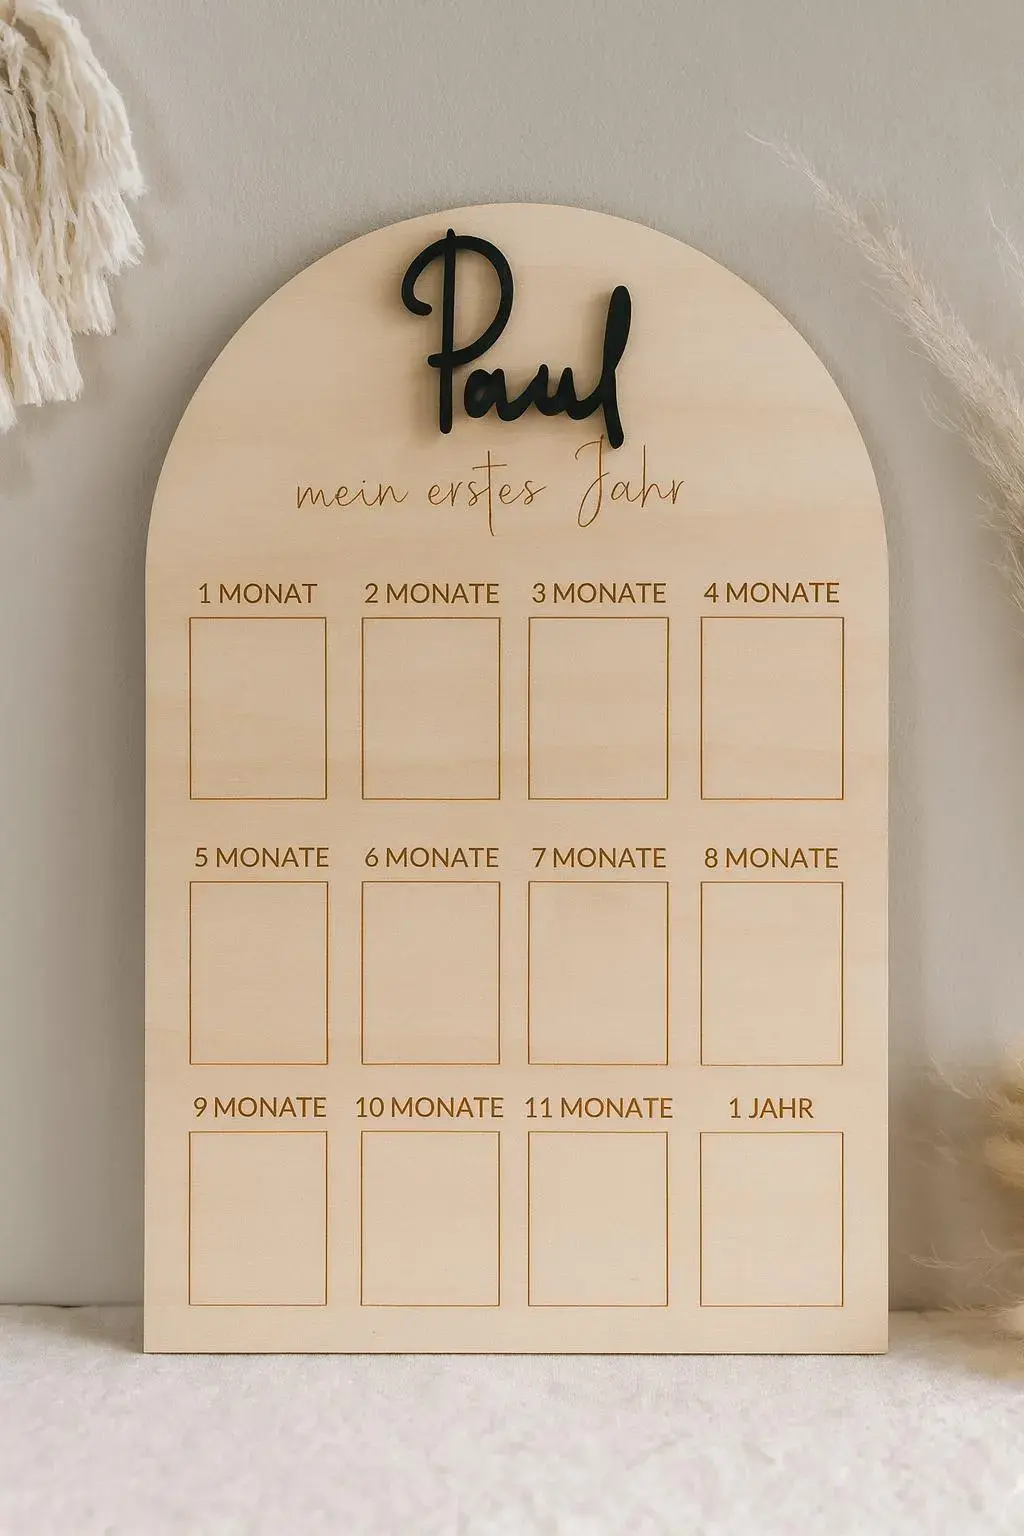 Paul
mein erstes Jahr
1 MONAT 2 MONATE 3 MONATE 4 MONATE
5 MONATE 6 MONATE 7 MONATE 8 MONATE
9 MONATE 10 MONATE 11 MONATE 1 JAHR